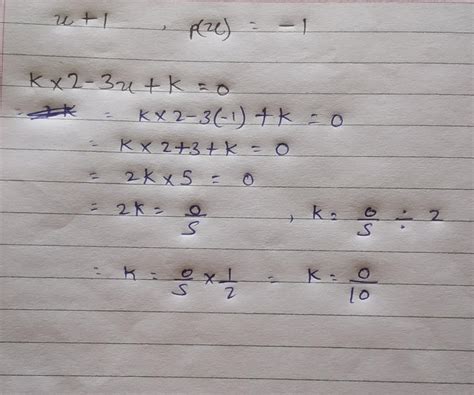 x+1 , p(x) = -1
K×2-3x+K=0
= K×2-3(-1)+K=0
= K×2+3+K=0
= 2K×5=0
= 2K=0/5 , K=0/5÷2
= K=0/5×1/2 = K=0/10